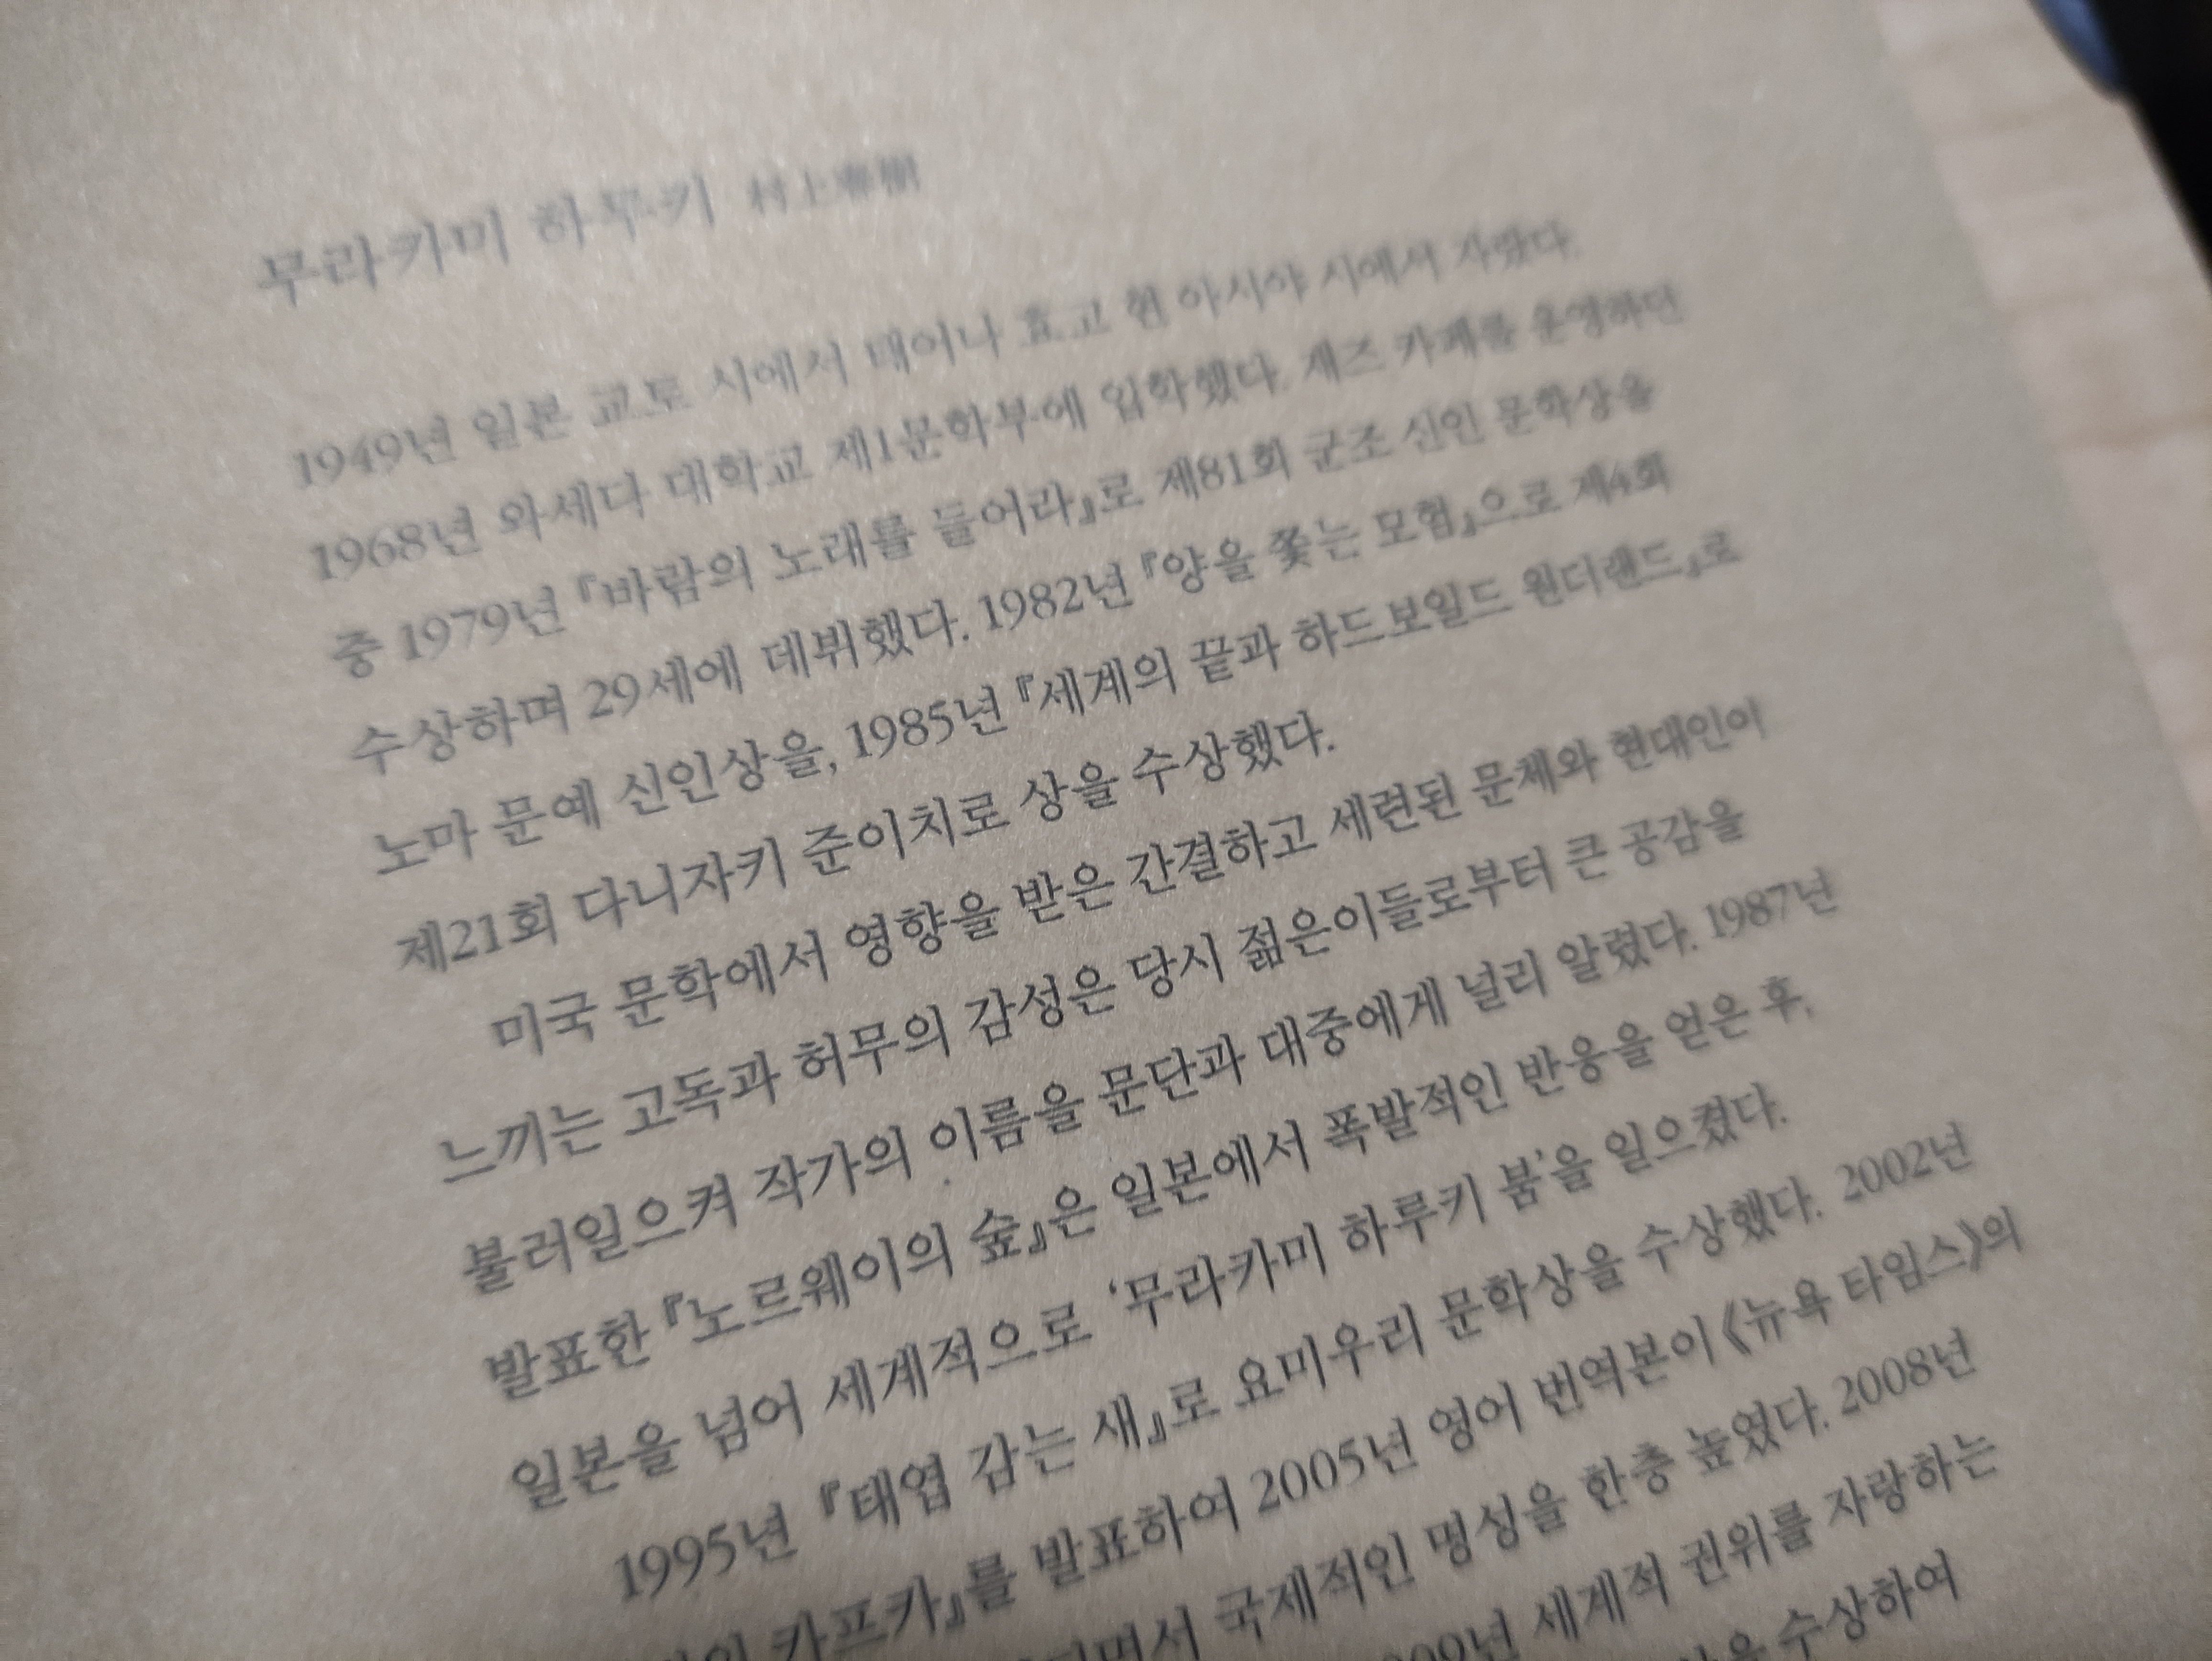 무라카미 하루키 村上春樹
1949년 일본 교토 시에서 태어나 효고 현 아시야 시에서 자랐다.
1968년 와세다 대학교 제1문학부에 입학했다. 재즈 카페를 운영하던
중 1979년 『바람의 노래를 들어라』로 제81회 군조 신인 문학상을
수상하며 29세에 데뷔했다. 1982년 『양을 쫓는 모험』으로 제4회
노마 문예 신인상을, 1985년 『세계의 끝과 하드보일드 원더랜드』로
제21회 다니자키 준이치로 상을 수상했다.
미국 문학에서 영향을 받은 간결하고 세련된 문체와 현대인이
느끼는 고독과 허무의 감성은 당시 젊은이들로부터 큰 공감을
불러일으켜 작가의 이름을 문단과 대중에게 널리 알렸다. 1987년
발표한 『노르웨이의 숲』은 일본에서 폭발적인 반응을 얻은 후,
일본을 넘어 세계적으로 '무라카미 하루키 붐'을 일으켰다.
1995년 『태엽 감는 새』로 요미우리 문학상을 수상했다. 2002년
카프카』를 발표하여 2005년 영어 번역본이 《뉴욕 타임스》의
국제적인 명성을 한층 높였다. 2008년
세계적 권위를 자랑하는
수상하여